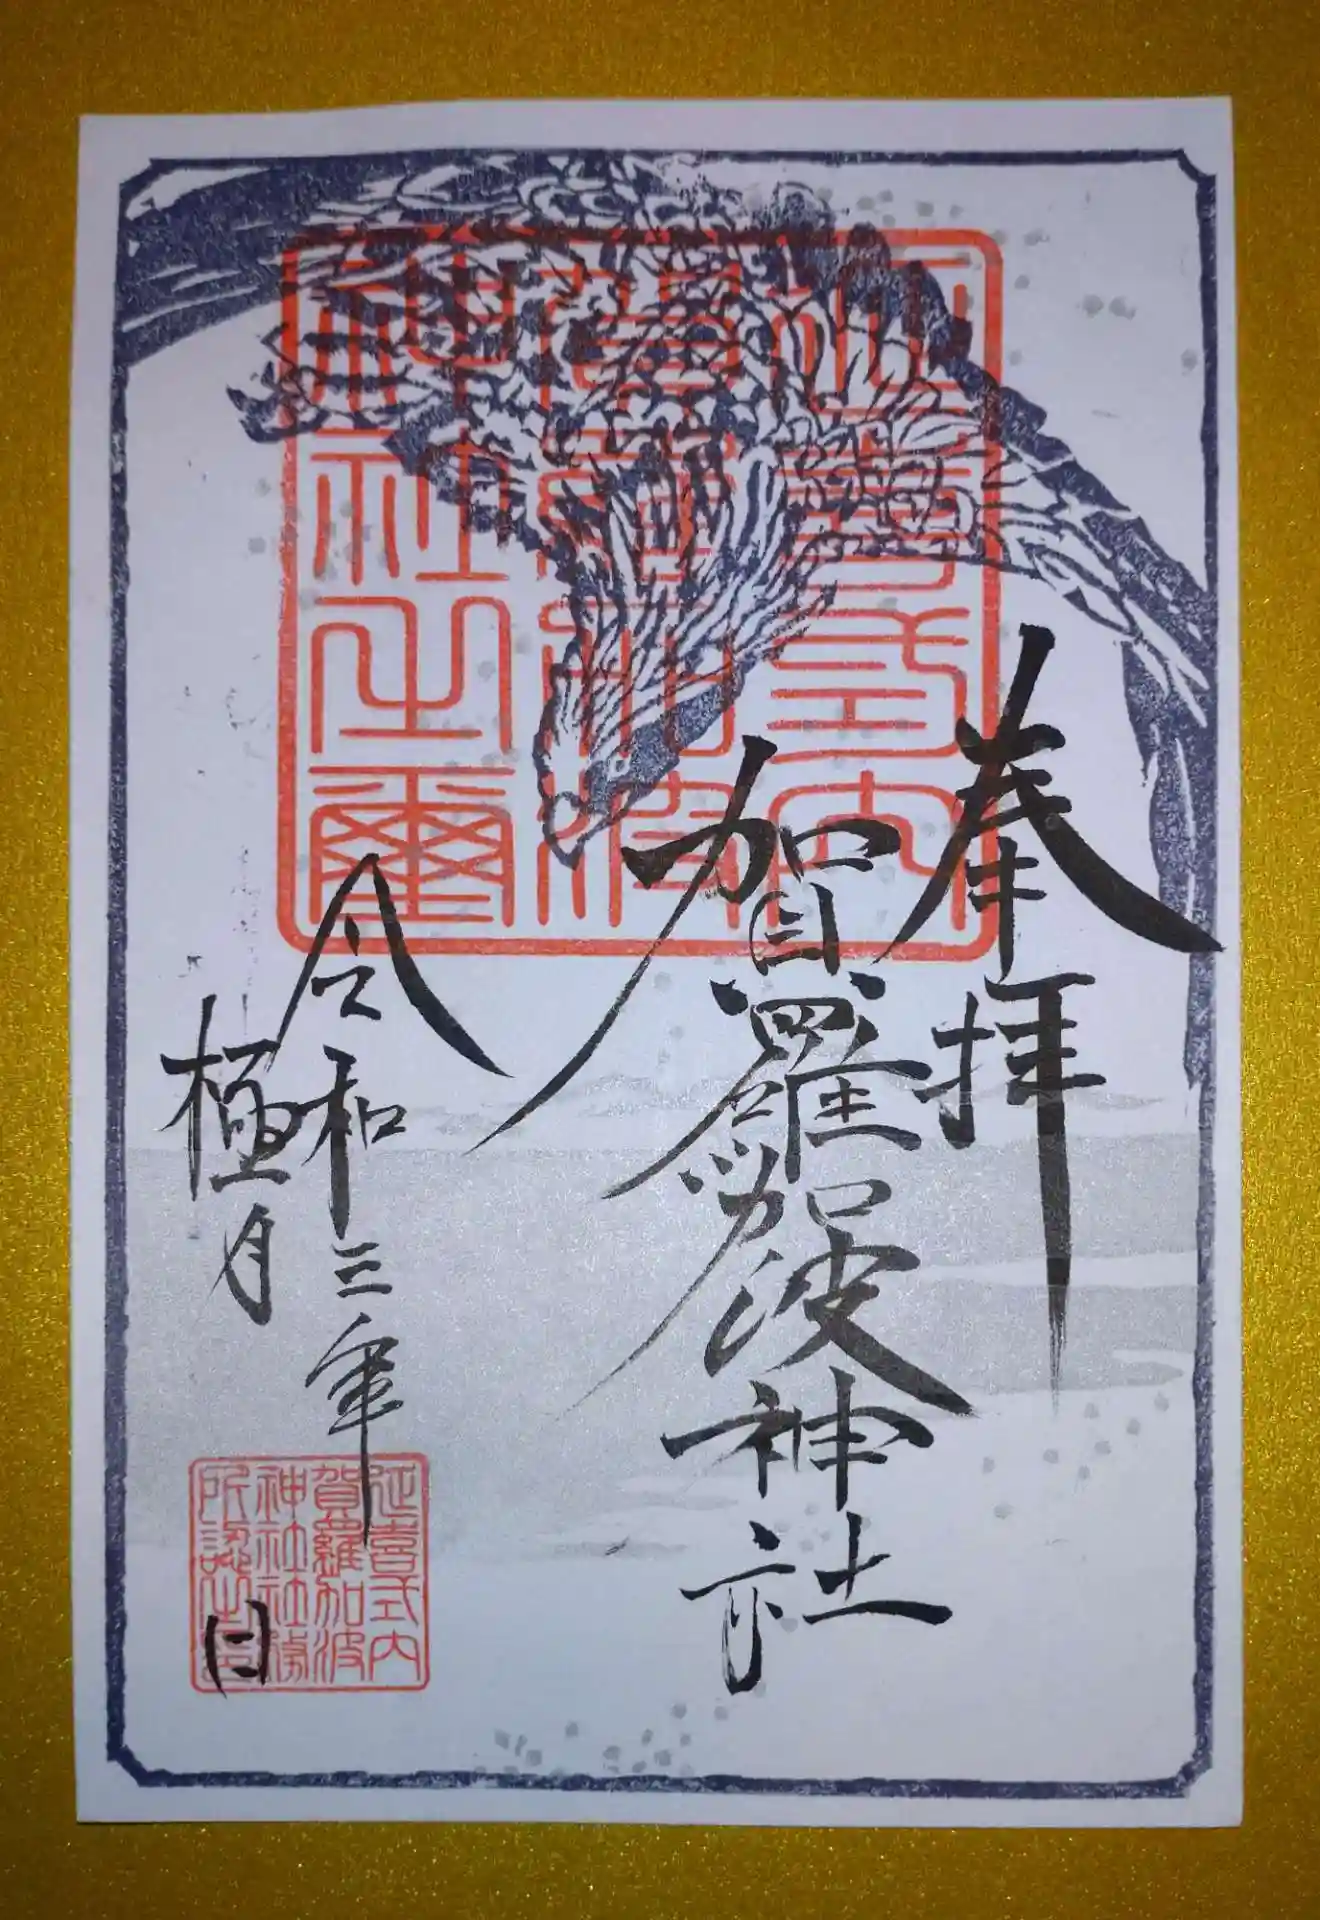 奉拝
賀羅加波神社
令和三年
極月
日
延喜式内
賀羅加波
神社之璽
延喜式内
賀羅加波
神社社務
所認之